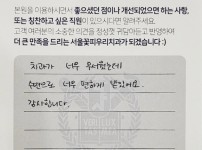 본원을 이용하시면서 좋으셨던 점이나 개선되었으면 하는 사항,
또는 칭찬하고 싶은 직원이 있으시다면 알려주세요.
고객 여러분의 소중한 의견을 정성껏 귀담아듣고 반영하여
더 큰 만족을 드리는 서울꽃피우리치과가 되겠습니다 :)
치과가 너무 무서웠는데
수면으로 너무 편하게 받았어요.
감사합니다.